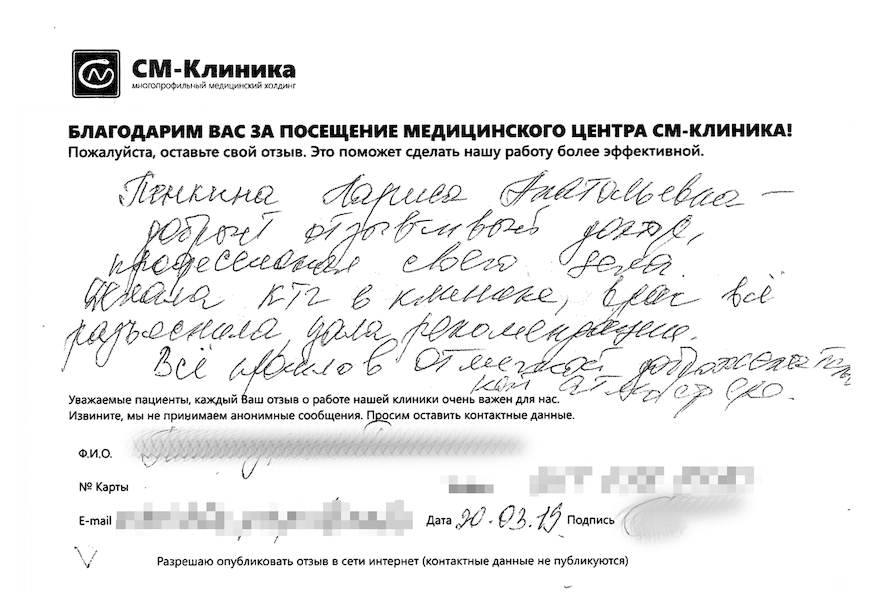 СМ-Клиника
многопрофильный медицинский холдинг
БЛАГОДАРИМ ВАС ЗА ПОСЕЩЕНИЕ МЕДИЦИНСКОГО ЦЕНТРА СМ-КЛИНИКА!
Пожалуйста, оставьте свой отзыв. Это поможет сделать нашу работу более эффективной.
Пенкина Лариса Анатольевна —
добрый отзывчивый доктор,
профессионал своего дела
Делала КТГ в клинике, врач всё
разъяснила, дала рекомендации.
Всё прошло в отличной доброжелатель
ной атмосфере.
Уважаемые пациенты, каждый Ваш отзыв о работе нашей клиники очень важен для нас.
Извините, мы не принимаем анонимные сообщения. Просим оставить контактные данные.
Ф.И.О.
№ Карты
E-mail Дата 20.03.19 Подпись
Разрешаю опубликовать отзыв в сети интернет (контактные данные не публикуются)